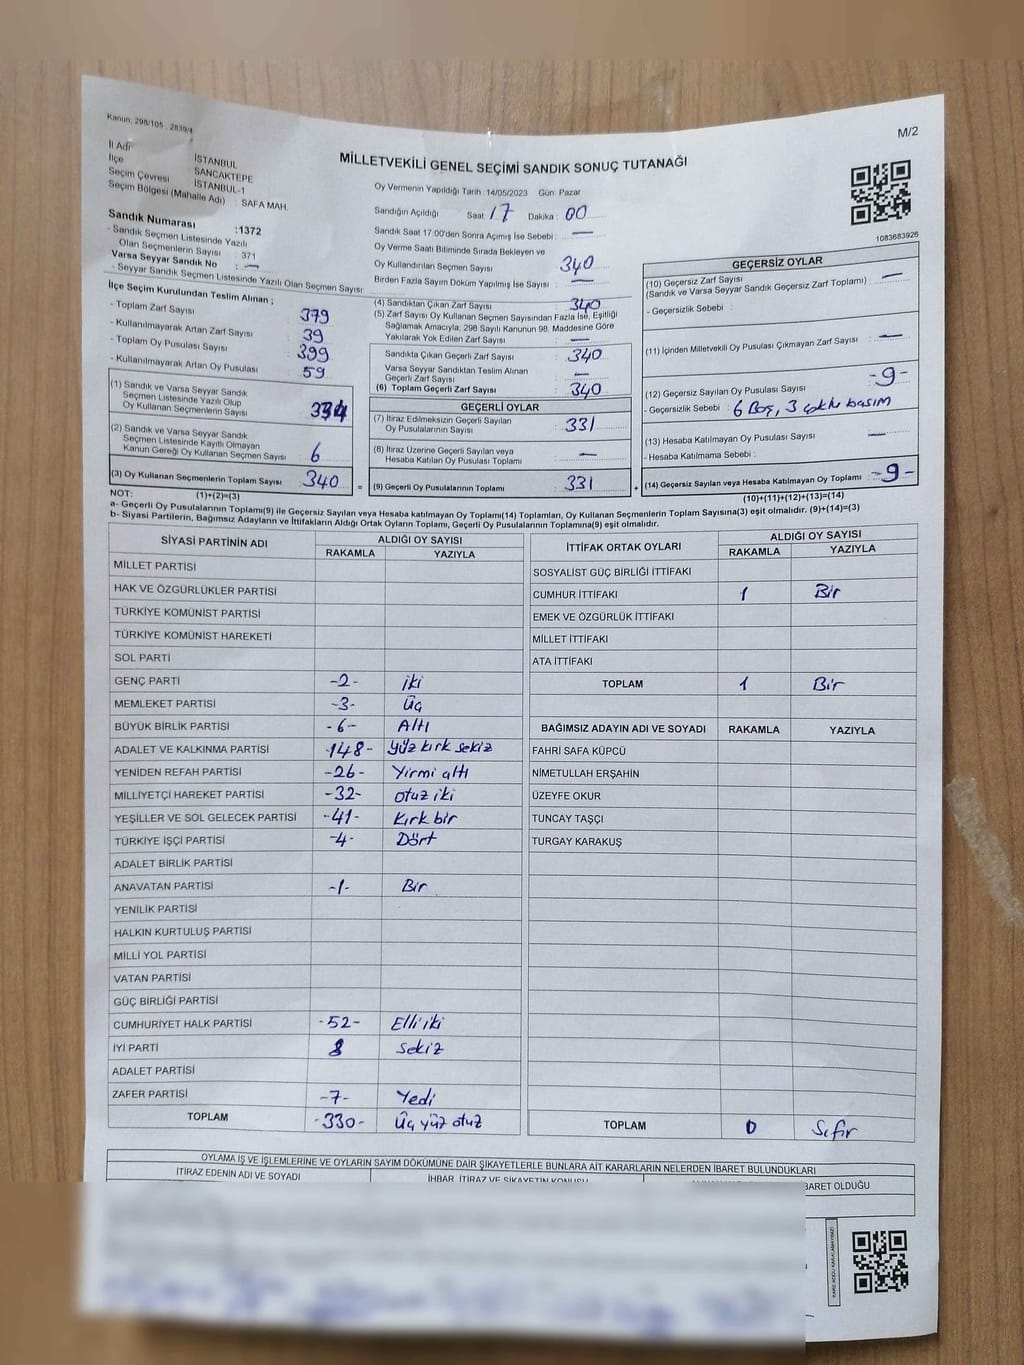 Kanun, 298/105 , 2839/4
M/2
MİLLETVEKİLİ GENEL SEÇİMİ SANDIK SONUÇ TUTANAĞI
İl Adı İSTANBUL
İlçe SANCAKTEPE
Seçim Çevresi İSTANBUL-1
Seçim Bölgesi (Mahalle Adı) : SAFA MAH.
Sandık Numarası :1372
- Sandık Seçmen Listesinde Yazılı
Olan Seçmenlerin Sayısı : 371
Varsa Seyyar Sandık No : —
- Seyyar Sandık Seçmen Listesinde Yazılı Olan Seçmen Sayısı:
İlçe Seçim Kurulundan Teslim Alınan ;
- Toplam Zarf Sayısı 379
- Kullanılmayarak Artan Zarf Sayısı 39
- Toplam Oy Pusulası Sayısı 399
- Kullanılmayarak Artan Oy Pusulası 59
(1) Sandık ve Varsa Seyyar Sandık
Seçmen Listesinde Yazılı Olup
Oy Kullanan Seçmenlerin Sayısı 334
(2) Sandık ve Varsa Seyyar Sandık
Seçmen Listesinde Kayıtlı Olmayan
Kanun Gereği Oy Kullanan Seçmen Sayısı 6
(3) Oy Kullanan Seçmenlerin Toplam Sayısı 340
Oy Vermenin Yapıldığı Tarih :14/05/2023 Gün :Pazar
Sandığın Açıldığı Saat : 17 Dakika : 00
Sandık Saat 17.00'den Sonra Açımış İse Sebebi : —
Oy Verme Saati Bitiminde Sırada Bekleyen ve
Oy Kullandırılan Seçmen Sayısı 340
Birden Fazla Sayım Döküm Yapılmış İse Sayısı : —
(4) Sandıktan Çıkan Zarf Sayısı 340
(5) Zarf Sayısı Oy Kullanan Seçmen Sayısından Fazla İse, Eşitliği
Sağlamak Amacıyla; 298 Sayılı Kanunun 98. Maddesine Göre
Yakılarak Yok Edilen Zarf Sayısı : —
Sandıkta Çıkan Geçerli Zarf Sayısı : 340
Varsa Seyyar Sandıktan Teslim Alınan
Geçerli Zarf Sayısı : —
(6) Toplam Geçerli Zarf Sayısı : 340
GEÇERLİ OYLAR
(7) İtiraz Edilmeksizin Geçerli Sayılan
Oy Pusulalarının Sayısı : 331
(8) İtiraz Üzerine Geçerli Sayılan veya
Hesaba Katılan Oy Pusulası Toplamı : —
= (9) Geçerli Oy Pusulalarının Toplamı : 331 +
1083683926
GEÇERSİZ OYLAR
(10) Geçersiz Zarf Sayısı
(Sandık ve Varsa Seyyar Sandık Geçersiz Zarf Toplamı) : —
- Geçersizlik Sebebi :
(11) İçinden Milletvekili Oy Pusulası Çıkmayan Zarf Sayısı : —
(12) Geçersiz Sayılan Oy Pusulası Sayısı : -9-
- Geçersizlik Sebebi : 6 Boş, 3 çoklu basım
(13) Hesaba Katılmayan Oy Pusulası Sayısı : —
- Hesaba Katılmama Sebebi :
(14) Geçersiz Sayılan veya Hesaba Katılmayan Oy Toplamı : -9-
NOT: (1)+(2)=(3) (10)+(11)+(12)+(13)=(14)
a- Geçerli Oy Pusulalarının Toplamı(9) ile Geçersiz Sayılan veya Hesaba Katılmayan Oy Toplamı(14) Toplamları, Oy Kullanan Seçmenlerin Toplam Sayısına(3) eşit olmalıdır. (9)+(14)=(3)
b- Siyasi Partilerin, Bağımsız Adayların ve İttifakların Aldığı Ortak Oyların Toplamı, Geçerli Oy Pusulalarının Toplamına(9) eşit olmalıdır.
SİYASİ PARTİNİN ADI ALDIĞI OY SAYISI
RAKAMLA YAZIYLA
MİLLET PARTİSİ
HAK VE ÖZGÜRLÜKLER PARTİSİ
TÜRKİYE KOMÜNİST PARTİSİ
TÜRKİYE KOMÜNİST HAREKETİ
SOL PARTİ
GENÇ PARTİ -2- iki
MEMLEKET PARTİSİ -3- Üç
BÜYÜK BİRLİK PARTİSİ -6- Altı
ADALET VE KALKINMA PARTİSİ -148- yüz kırk sekiz
YENİDEN REFAH PARTİSİ -26- Yirmi altı
MİLLİYETÇİ HAREKET PARTİSİ -32- otuz iki
YEŞİLLER VE SOL GELECEK PARTİSİ -41- Kırk bir
TÜRKİYE İŞÇİ PARTİSİ -4- Dört
ADALET BİRLİK PARTİSİ
ANAVATAN PARTİSİ -1- Bir
YENİLİK PARTİSİ
HALKIN KURTULUŞ PARTİSİ
MİLLİ YOL PARTİSİ
VATAN PARTİSİ
GÜÇ BİRLİĞİ PARTİSİ
CUMHURİYET HALK PARTİSİ -52- Elli iki
İYİ PARTİ 8 Sekiz
ADALET PARTİSİ
ZAFER PARTİSİ -7- Yedi
TOPLAM -330- Üç yüz otuz
İTTİFAK ORTAK OYLARI ALDIĞI OY SAYISI
RAKAMLA YAZIYLA
SOSYALİST GÜÇ BİRLİĞİ İTTİFAKI
CUMHUR İTTİFAKI 1 Bir
EMEK VE ÖZGÜRLÜK İTTİFAKI
MİLLET İTTİFAKI
ATA İTTİFAKI
TOPLAM 1 Bir
BAĞIMSIZ ADAYIN ADI VE SOYADI RAKAMLA YAZIYLA
FAHRİ SAFA KÜPCÜ
NİMETULLAH ERŞAHİN
ÜZEYFE OKUR
TUNCAY TAŞÇI
TURGAY KARAKUŞ
TOPLAM 0 Sıfır
OYLAMA İŞ VE İŞLEMLERİNE VE OYLARIN SAYIM DÖKÜMÜNE DAİR ŞİKAYETLERLE BUNLARA AİT KARARLARIN NELERDEN İBARET BULUNDUKLARI
İTİRAZ EDENİN ADI VE SOYADI İHBAR, İTİRAZ VE ŞİKAYETİN KONUSU BARET OLDUĞU